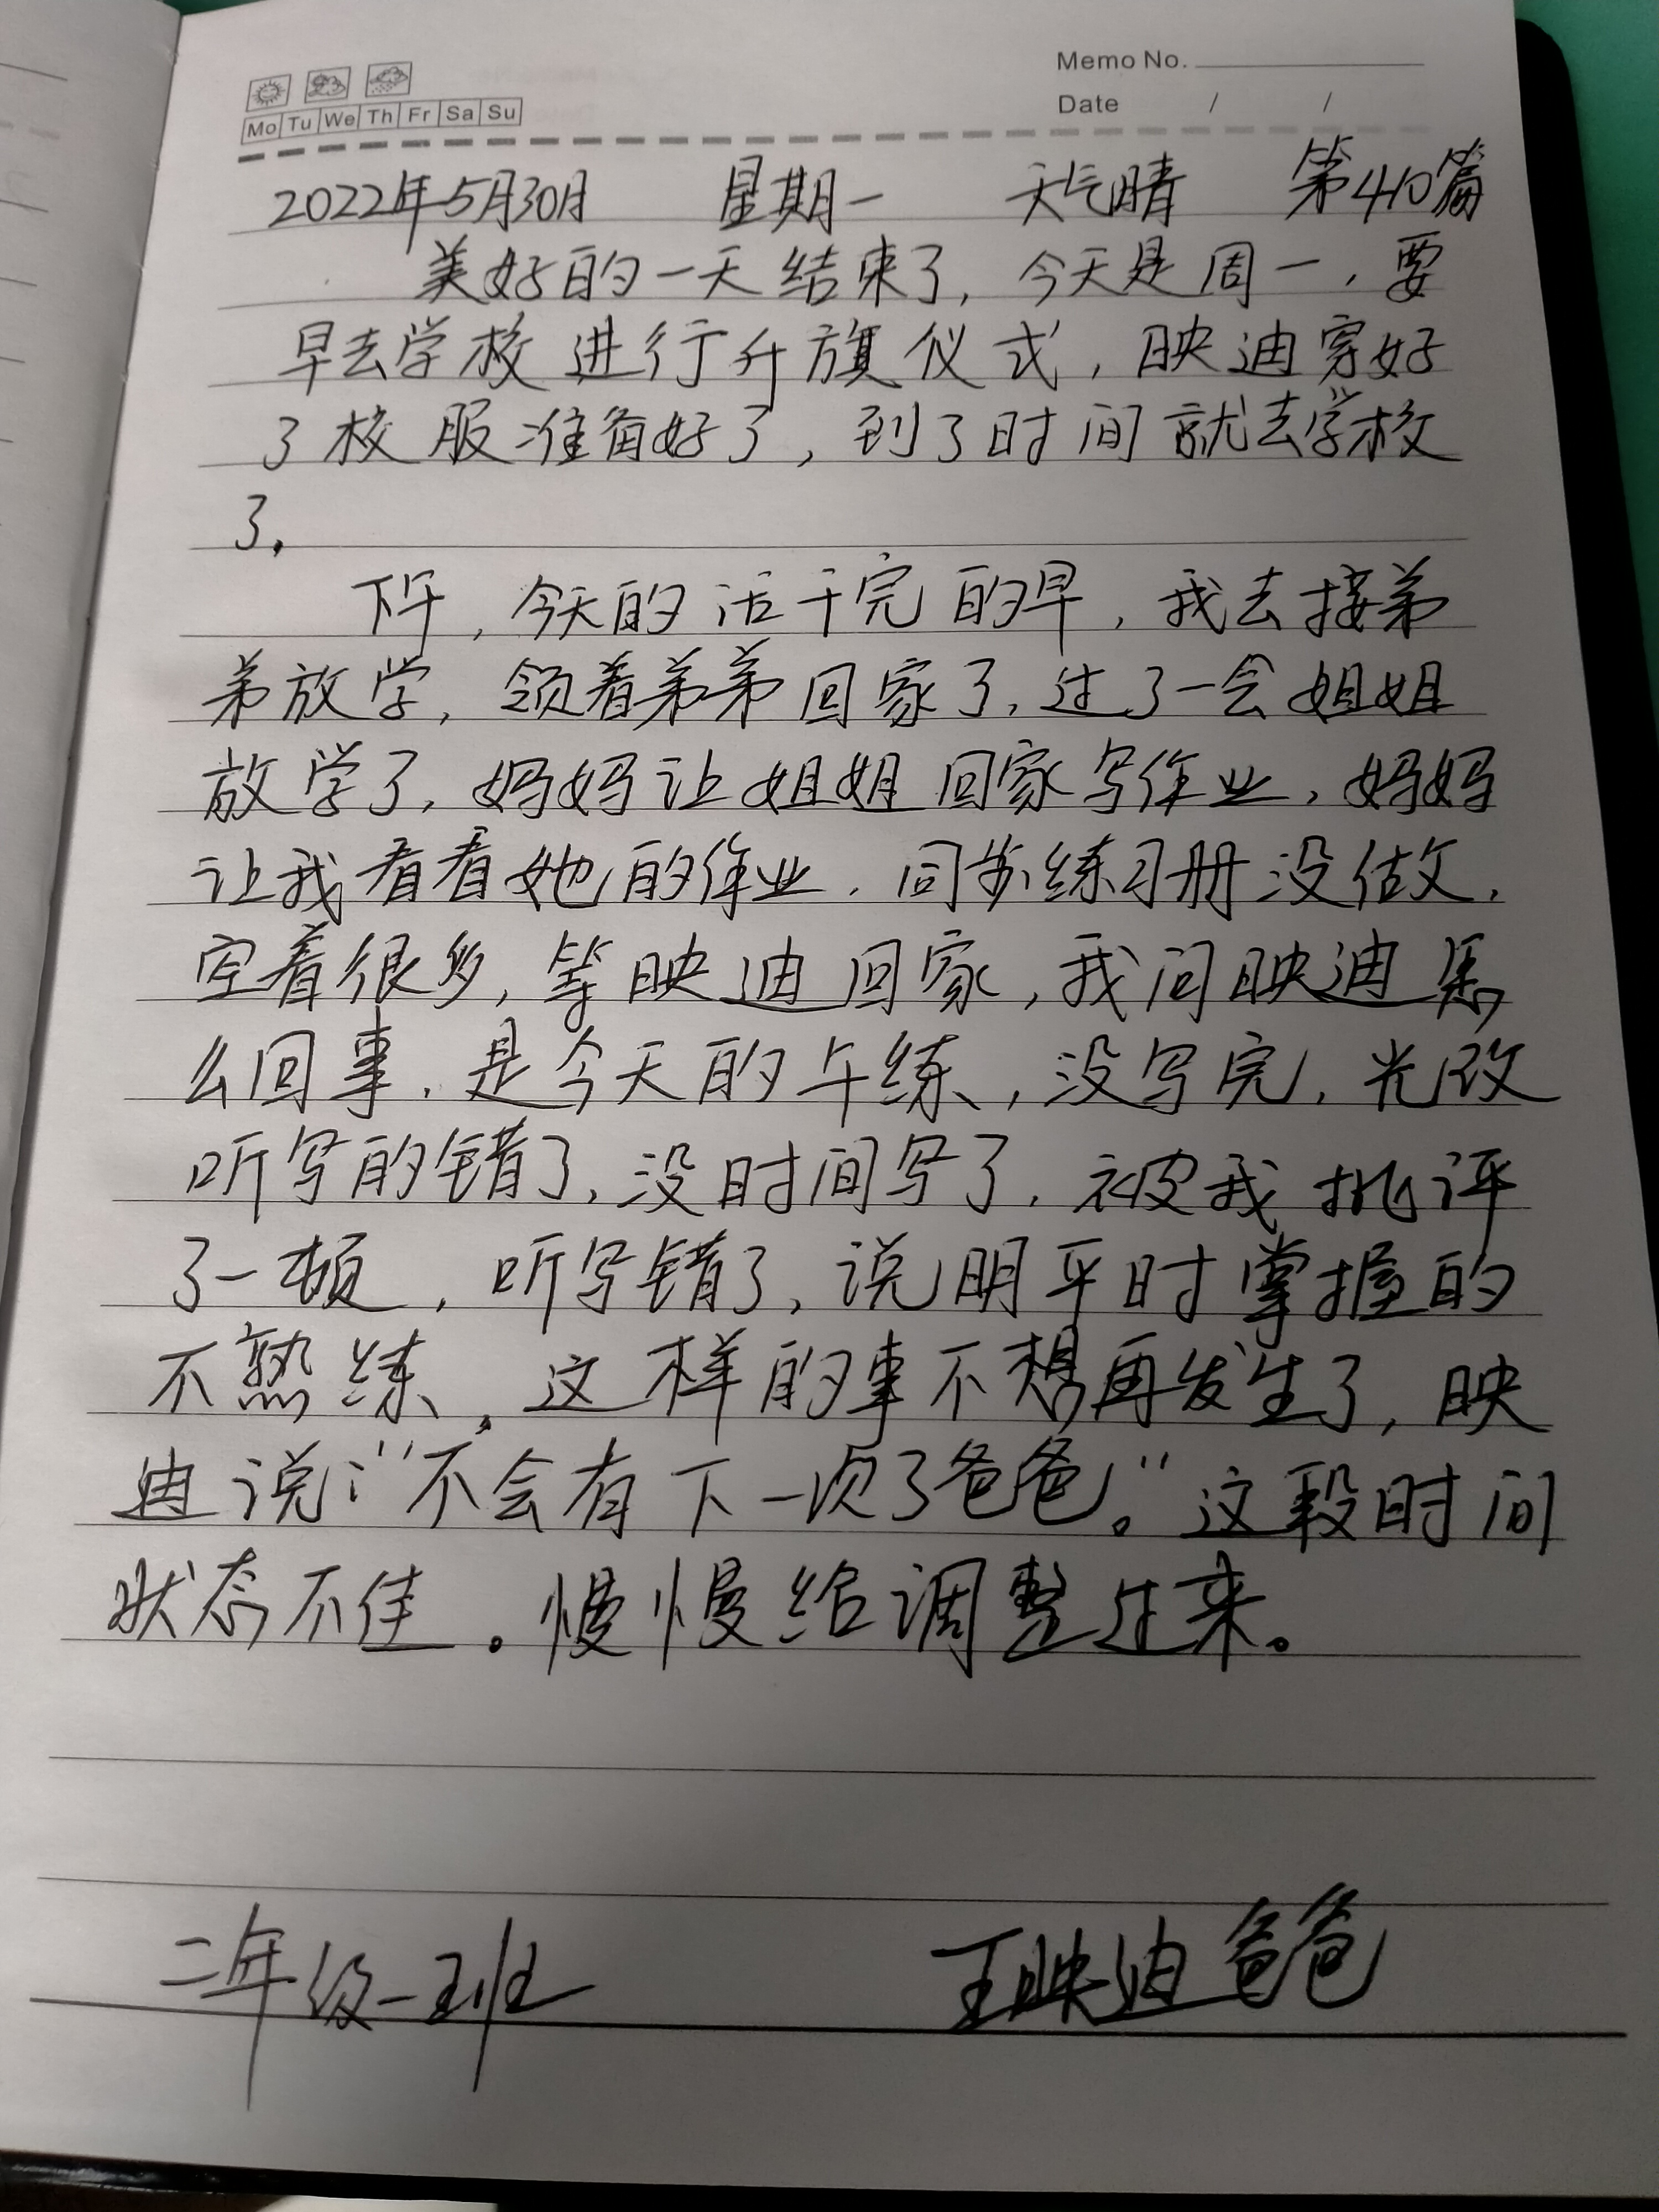 Memo No.
Mo Tu We Th Fr Sa Su
Date / /
2022年5月30日 星期一 天气晴 第410篇
美好的一天结束了,今天是周一,要
早去学校进行升旗仪式,映迪穿好
了校服准备好了,到了时间就去学校
了。
下午,今天的活干完的早,我去接弟
弟放学,领着弟弟回家了,过了一会姐姐
放学了,妈妈让姐姐回家写作业,妈妈
让我看看她的作业,同步练习册没做,
空着很多,等映迪回家,我问映迪怎
么回事,是今天的午练,没写完,光改
听写的错了,没时间写了,被我批评
了一顿,听写错了,说明平时掌握的
不熟练,这样的事不想再发生了,映
迪说:“不会有下一次了爸爸。”这段时间
状态不佳。慢慢给调整过来。
二年级一班 王映迪爸爸